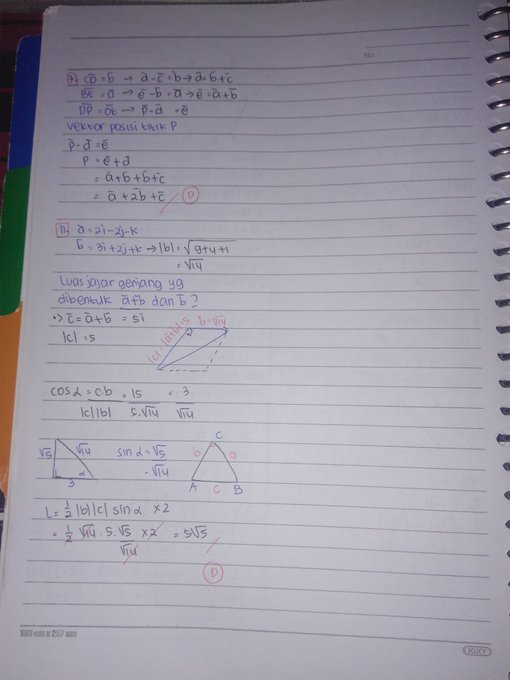 No.:
7. CD = b̄ → d̄ - c̄ = b̄ → d̄ = b̄ + c̄
BE = ā → ē - b̄ = ā → ē = ā + b̄
DP = OE → p̄ - d̄ = ē
vektor posisi titik P
p̄ - d̄ = ē
P = ē + d̄
= ā + b̄ + b̄ + c̄
= ā + 2b̄ + c̄ D
11. ā = 2i - 2j - k
b̄ = 3i + 2j + k → |b| = √9+4+1
= √14
Luas jajar genjang yg
dibentuk ā+b dan b̄ ?
c̄ = ā + b̄ = 5i
|c| = 5
|c| = |ā+b| = 5 b̄ = √14
cos α = c.b = 15 = 3
|c||b| 5.√14 √14
√5 √14 sin α = √5
√14
3 α
C
b a
A c B
L = 1/2 |b||c| sin α × 2
= 1/2 √14 . 5 . √5 × 2 = 5√5
√14
D
180 mm x 257 mm
KIKY